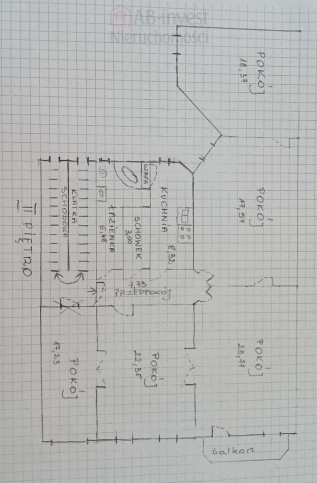 AB-invest
Nieruchomości
POKÓJ
POKÓJ
17,57
POKÓJ
KUCHNIA
8,32
SCHOWEK
3,00
ŁAZIENKA
KLATKA
SCHODOWA
II PIĘTRO
7,73
PRZEDPOKÓJ
POKÓJ
22,35
POKÓJ
17,23
balkon